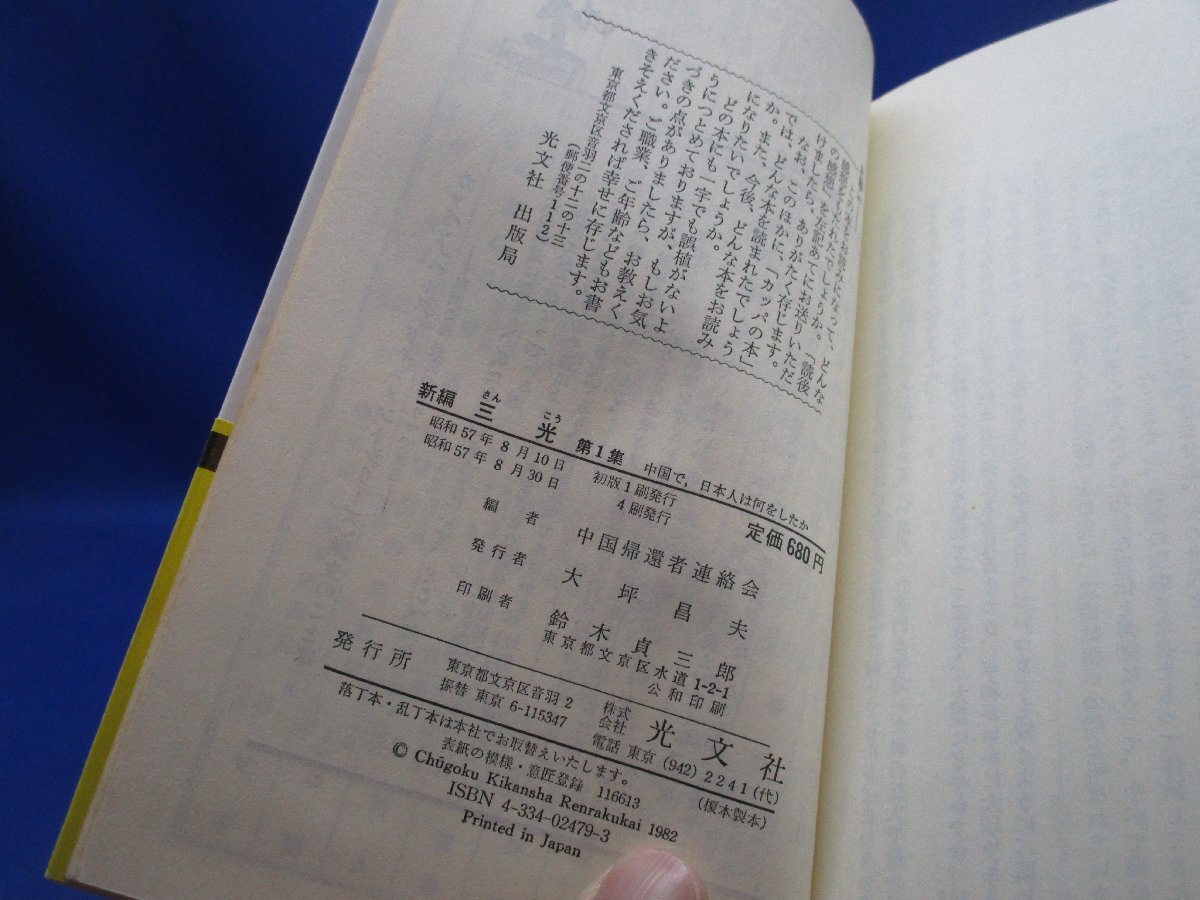 この本をお読みになって、どんな
感想をもたれたでしょうか。「読後
の感想」を左記あてにお送りいただ
けましたら、ありがたく存じます。
なお、このほかに、「カッパの本」
では、どんな本を読まれたでしょう
か。また、今後、どんな本をお読み
になりたいでしょうか。
どの本にも一字でも誤植がないよ
うにつとめておりますが、もしお気
づきの点がありましたら、お教えく
ださい。ご職業、ご年齢などもお書
きそえくだされば幸せに存じます。
東京都文京区音羽二の十二の十三
(郵便番号112)
光文社 出版局
新編 三光 第1集 中国で,日本人は何をしたか
さん こう
定価680円
昭和57年8月10日 初版1刷発行
昭和57年8月30日 4刷発行
編者 中国帰還者連絡会
発行者 大坪昌夫
印刷者 鈴木貞三郎
東京都文京区水道1-2-1
公和印刷
発行所 東京都文京区音羽2 株式会社 光文社
振替 東京 6-115347 電話 東京 (942) 2241(代)
落丁本・乱丁本は本社でお取替えいたします。 (榎本製本)
表紙の模様・意匠登録 116613
© Chūgoku Kikansha Renrakukai 1982
ISBN 4-334-02479-3
Printed in Japan